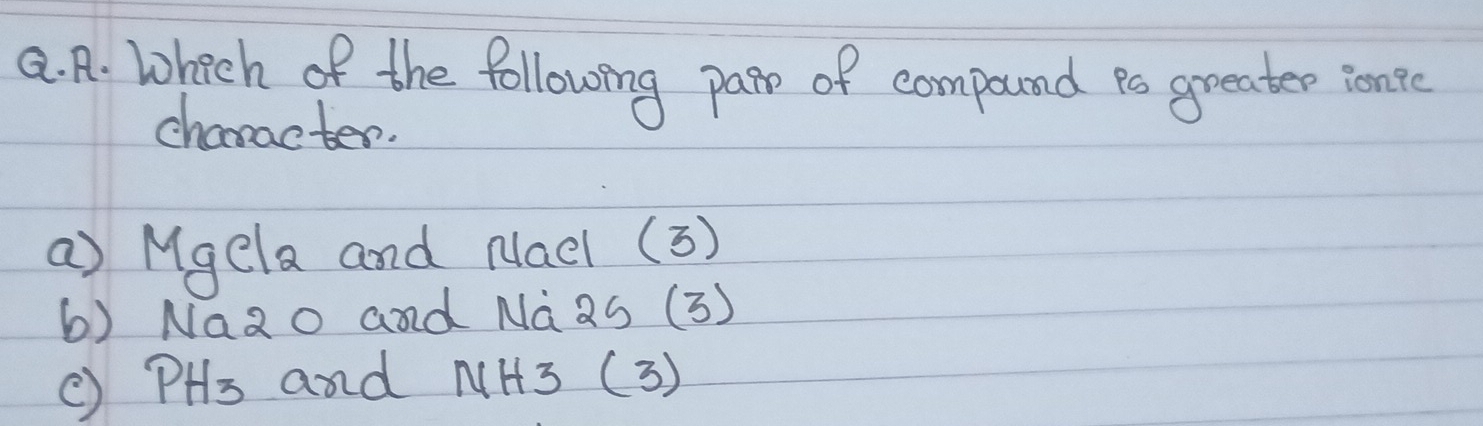 Q.A. Which of the following pair of compound is greater ionic
character.
a) MgCl2 and NaCl (3)
b) Na2O and Na2S (3)
c) PH3 and NH3 (3)